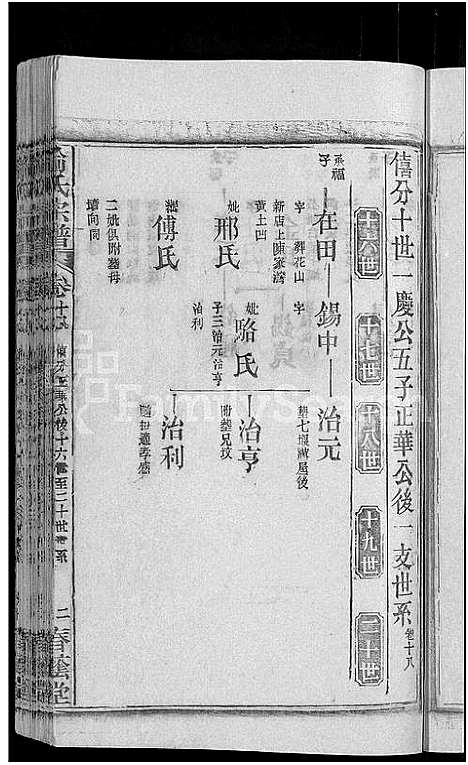 僖分十世一慶公五子正華公後一支世系 卷十八
十六世 十七世 十八世 十九世 二十世
承福子
在田
錫中
治元
字
葬花山
字
葬七堰
屋後
新店上陳家灣
黃土凹
妣
邢氏
妣
駱氏
治亨
子三治元治亨
治利
附葬兄墳
繼
傅氏
治利
二妣俱附葬母
墳向同
氏宗譜
卷十八
僖分正華公後十六世至二十世世系
二
春蔭堂
FamilySearch